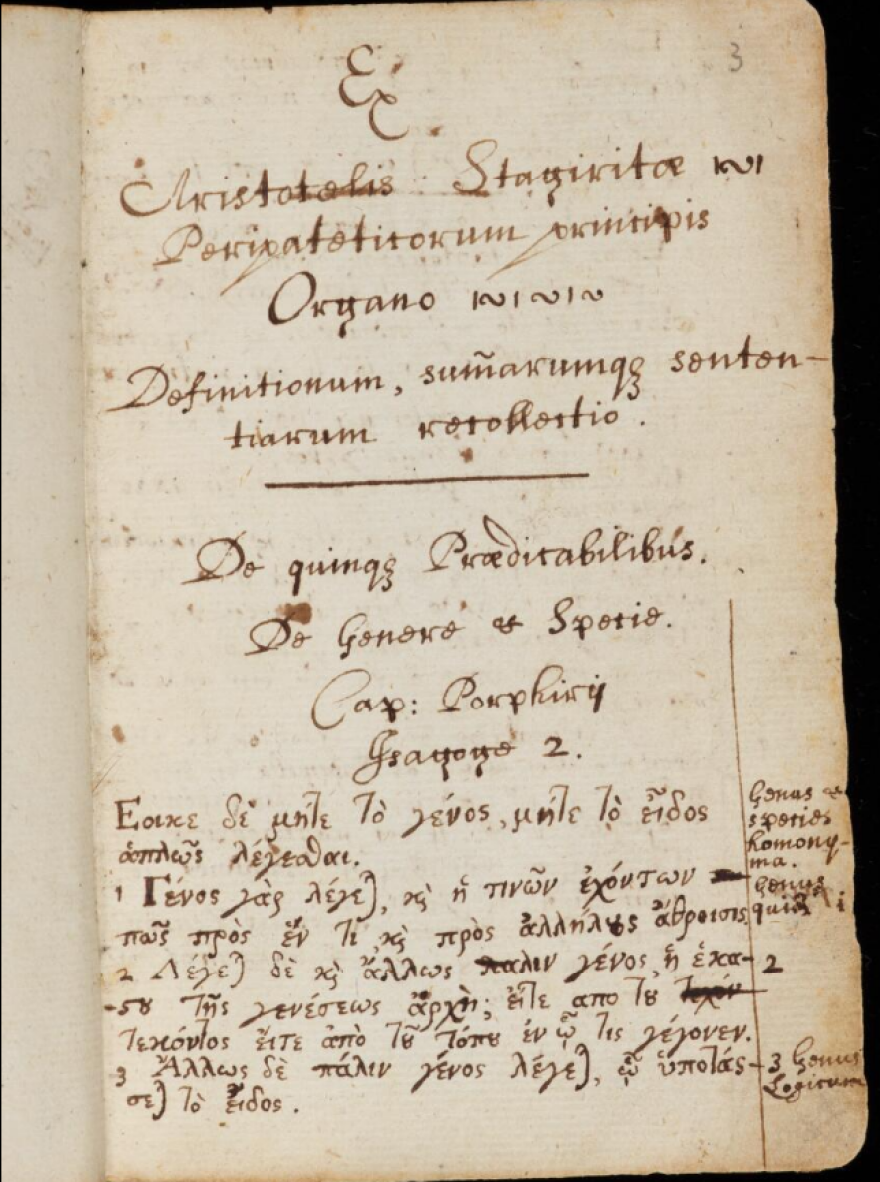 3
Ex
Aristotelis Stagiritæ
Peripateticorum principis
Organo
Definitionum, sum̄arumqȝ senten-
tiarum recollectio.
De quinqȝ Prædicabilibus.
De Genere & Specie.
Cap: Porphirij
Isagoge 2.
Εοικε δὲ μήτε τὸ γένος, μήτε τὸ εἶδος
ἁπλῶς λέγεσθαι.
1 Γένος γὰρ λέγε), κὶ ἡ τινῶν ἐχόντων
πῶς πρὸς ἕν τι κὶ πρὸς ἀλλήλȣς ἄθροισις
2 Λέγε) δὲ κὶ ἄλλως παλιν γένος ἡ ἑκα-
ςȣ τῆς γενέσεως ἀρχὴ; εἴτε απο τȣ
τεκόντος εἴτε ἀπὸ τȣ͂ τόπȣ ἐν ᾧ τις γέγονεν.
3 Ἄλλως δὲ πάλιν γένος λέγε), ᾧ ὑποτάσ-
σε) τὸ εἶδος.
Genus &
species
homony-
ma.
Genus
1
2
3 Genus
Logicum